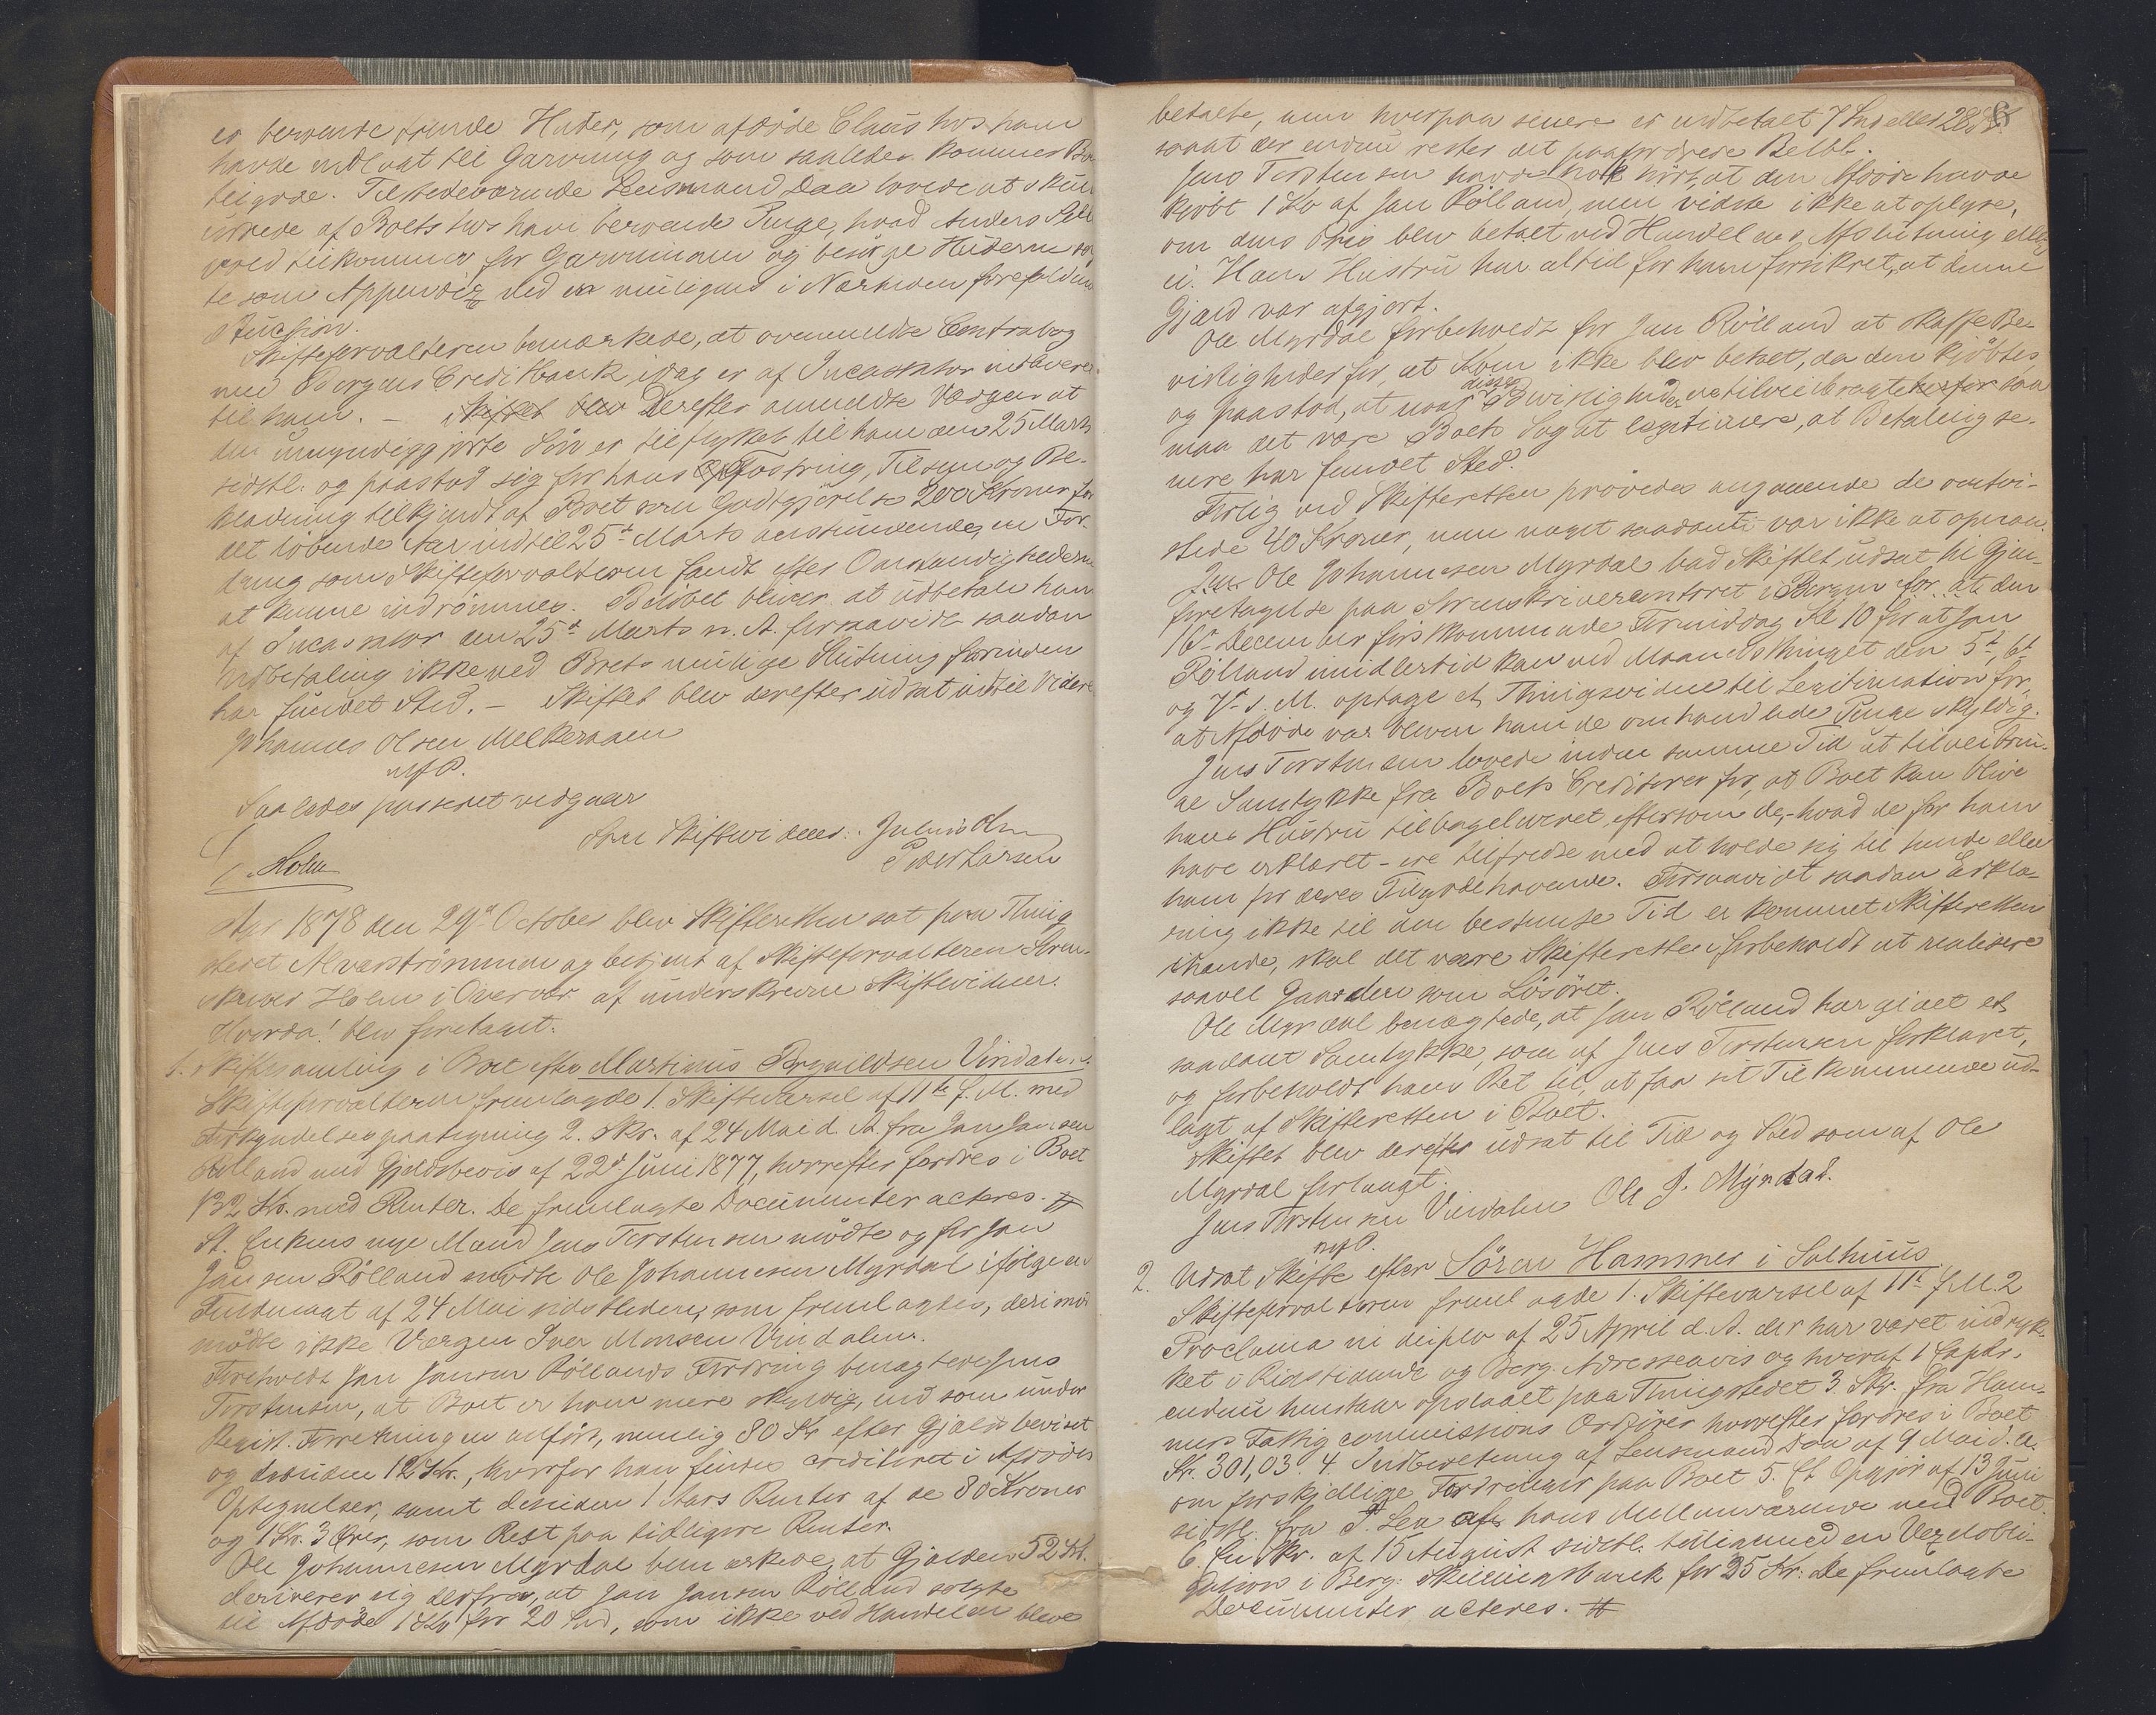 er beroende Huder, som afdöde Claus hos ham
havde indleat til Garvning og som saaledes kommer Bo-
tilgode. Tilstedeværende Lensmand Daae lovede at
udrede af Boets hos ham beroende Penge, hvad Anders
tilkommer for Garvningen og besörge Huderne
te som Appendix ved en muligens i Nærheden forefaldende
Auction.
Skifteforvalteren bemærkede, at ovenmeldte Contrabog
med Bergens Creditbank idag er af Incassator indleveret
til ham. – Derefter anmeldte Værgen at
den umyndiggjorte Sön er tilflyttet til ham den 25 Marts
sidstl. og paastod sig for hans Fostring, Tilsyn og Be-
klædning tilkjendt af Boet som Godtgjörelse 200 Kroner for
det löbende Aar indtil 25de Marts anstundende, en For-
dring som Skifteforvalteren fandt efter Omstændighederne
at kunne indrömmes. Belöbet bliver at udbetale ham
af Incassator den 25de Marts n. A. forsaavidt saadan
Udbetaling ikke ved Boets mulige Slutning forinden
har fundet Sted. – Skiftet blev derefter udsat indtil Videre
Johannes Olsen Melkeraaen
m f P.
Saaledes passeret vedgaar
som Skiftevidner:
Peder Larsen
Holm
Aar 1878 den 29de October blev Skifteretten sat paa Thing
stedet Alverströmmen og betjent af Skifteforvalteren Soren-
skriver Holm i Overvær af underskrevne Skiftevidner.
Hvorda! blev foretaget:
1. Skiftesamling i Boet efter Martinus Brynildsen Vindalen.
Skifteforvalteren fremlagde 1. Skiftevarsel af 11te f. M. med
Forkyndelsespaategning 2. Skr. af 24 Mai d. A. fra Jan Jansen
Rölland med Gjeldsbevis af 22de Juni 1877, hvorefter fordres i Boet
132 Kr. med Renter. De fremlagte Documenter acteres. #
St. Enkens nye Mand Jens Torstensen mödte og for Jan
Jansen Rölland mödte Ole Johannesen Myrdal ifölge en
Fuldmagt af 24 Mai sidstleden, som fremlagdes, derimod
mödte ikke Værgen Iver Monsen Vindalen.
Foreholdt Jan Jansen Röllands Fordring benægtede Jens
Torstensen, at Boet er ham mere skyldig, end som under
Regist. Forretningen anfört, nemlig 80 Kr efter Gjeldsbeviset
og desuden 12 Kr., hvorfor han findes crediteret i Afdödes
Optegnelser, samt desuden 1 Aars Renter af de 80 Kroner
og 1 Kr. 3 Ører, som Rest paa tidligere Renter.
Ole Johannesen Myrdal bemærkede, at Gjelden 52 Kr.
deriverer sig derfra, at Jan Jansen Rölland solgte
til Afdöde 1 Ko for 20 Spd, som ikke ved Handelen bleve
betalte, men hvorpaa senere er indbetalt 7 Spd eller 28 Kr
saaat der endnu rester det paafordrede Belöb.
Jens Torstensen havde nok hört, at den Afdöde havde
kjöbt 1 Ko af Jan Rölland, men vidste ikke at oplyse,
om dens Pris blev betalt ved Handelens Afslutning eller
ei. Hans Hustru har altid for ham forsikret, at denne
Gjæld var afgjort.
Ole Myrdal forbeholdt for Jan Rölland at skaffe Be-
visligheder for, at Koen ikke blev betalt, da den kjöbtes,
og paastod, at naar disse Bevisligheder ere tilveiebragte, saa
maa det være Boets Sag at legitimere, at Betaling se-
nere har fundet Sted.
Forlig ved Skifteretten prövedes angaaende de omtvi-
stede 40 Kroner, men noget saadant var ikke at opnaa.
Ole Johannesen Myrdal bad Skiftet udsat til Gjen-
foretagelse paa Sorenskrivercontoret i Bergen for at den
16de December förstkommende Formiddag Kl 10 for at Jan
Rölland imidlertid kan ved Maanedsthinget den 5te, 6te
og 7de s. M. optage et Thingsvidne til Legitimation for
at Afdöde var bleven ham de omhandlede Penge skyldig.
Jens Torstensen lovede inden samme Tid at tilveiebrin-
ge Samtykke fra Boets Creditorer for, at Boet kan blive
hans Hustru tilbageleveret eftersom de, – hvad de for ham
have erklæret – ere tilfredse med at holde sig til hende eller
ham for deres Tilgodehavende. Forsaavidt saadan Erklæ-
ring ikke til den bestemte Tid er kommet Skifteretten
ihænde, skal det være Skifteretten forbeholdt at realisere
saavel Gaarden som Lösöret.
Ole Myrdal benægtede, at Jan Rölland har givet et
saadant Samtykke, som af Jens Torstensen forklaret,
og forbeholdt ham Ret til, at faa sit Tilkommende ud-
lagt af Skifteretten i Boet.
Skiftet blev derefter udsat til Tid og Sted som af Ole
Myrdal forlangt.
Jens Torstensen Vindalen Ole J. Myrdal.
m f P.
2. Udsat Skifte efter Sören Hammer i Salhuus
Skifteforvalteren fremlagde 1. Skiftevarsel af 11te f. M. 2
Proclama in duplo af 25 April d. A. der har været indryk-
ket i Rigstidende og Berg. Adresseavis og hvoraf 1 Explr.
endnu henstaar opslaaet paa Thingstedet 3. Skr. fra Ham-
mers Fattigcommissions Ordförer hvorefter fordres i Boet
Kr. 301,03. 4. Indberetning af Lensmand Daae af 9 Mai d. A.
om forskjellige Fordringer paa Boet 5. Et Opgjör af 13 Juni
sidstl. fra P. Lea hans Mellemværende med Boet
6. En Skr. af 15 August sidstl. tilligemed en Vexelobli-
gation i Berg. Skillingsbank for 35 Kr. De fremlagte
Documenter acteres. #